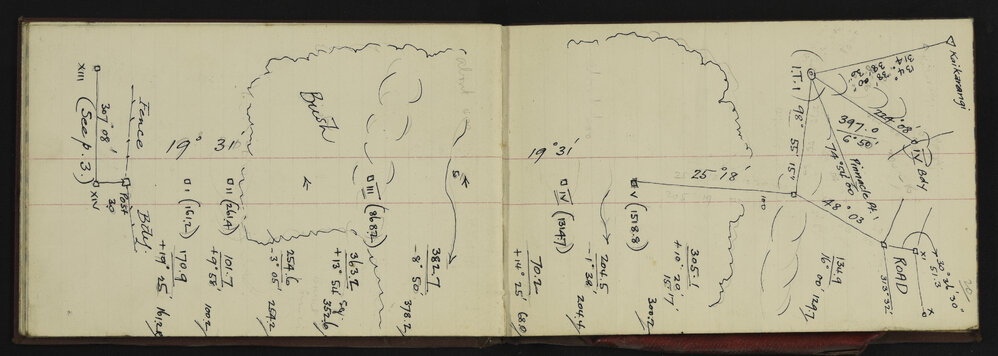 XIII
307° 08'
(See p. 3.)
XIV
Fence
Post
30
Bdy.
19° 31'
I (161.2)
II (261.4)
Bush
III (868.2)
170.9
+ 19° 25'
161.25
101.7
+ 9° 58'
100.2
254.6
- 3° 05'
254.2
363.2
+ 13° 54'
say
352.6
382.7
- 8° 50'
378.2
19° 31'
IV (1314.7)
V (1518.8)
70.2
+ 14° 25'
68.0
204.5
- 1° 38'
204.4
305.1
+ 10° 20'
300.2
25° 18'
100
I.T.1
98° 55' 15"
314° 38' 00"
Kaikarangi
IV Bdy
397.0
6° 50'
Pinnacle Pt. 1
48° 03'
134.9
16° 00'
129.7
ROAD
313° 32'
30° 36' 30"
51.3
20